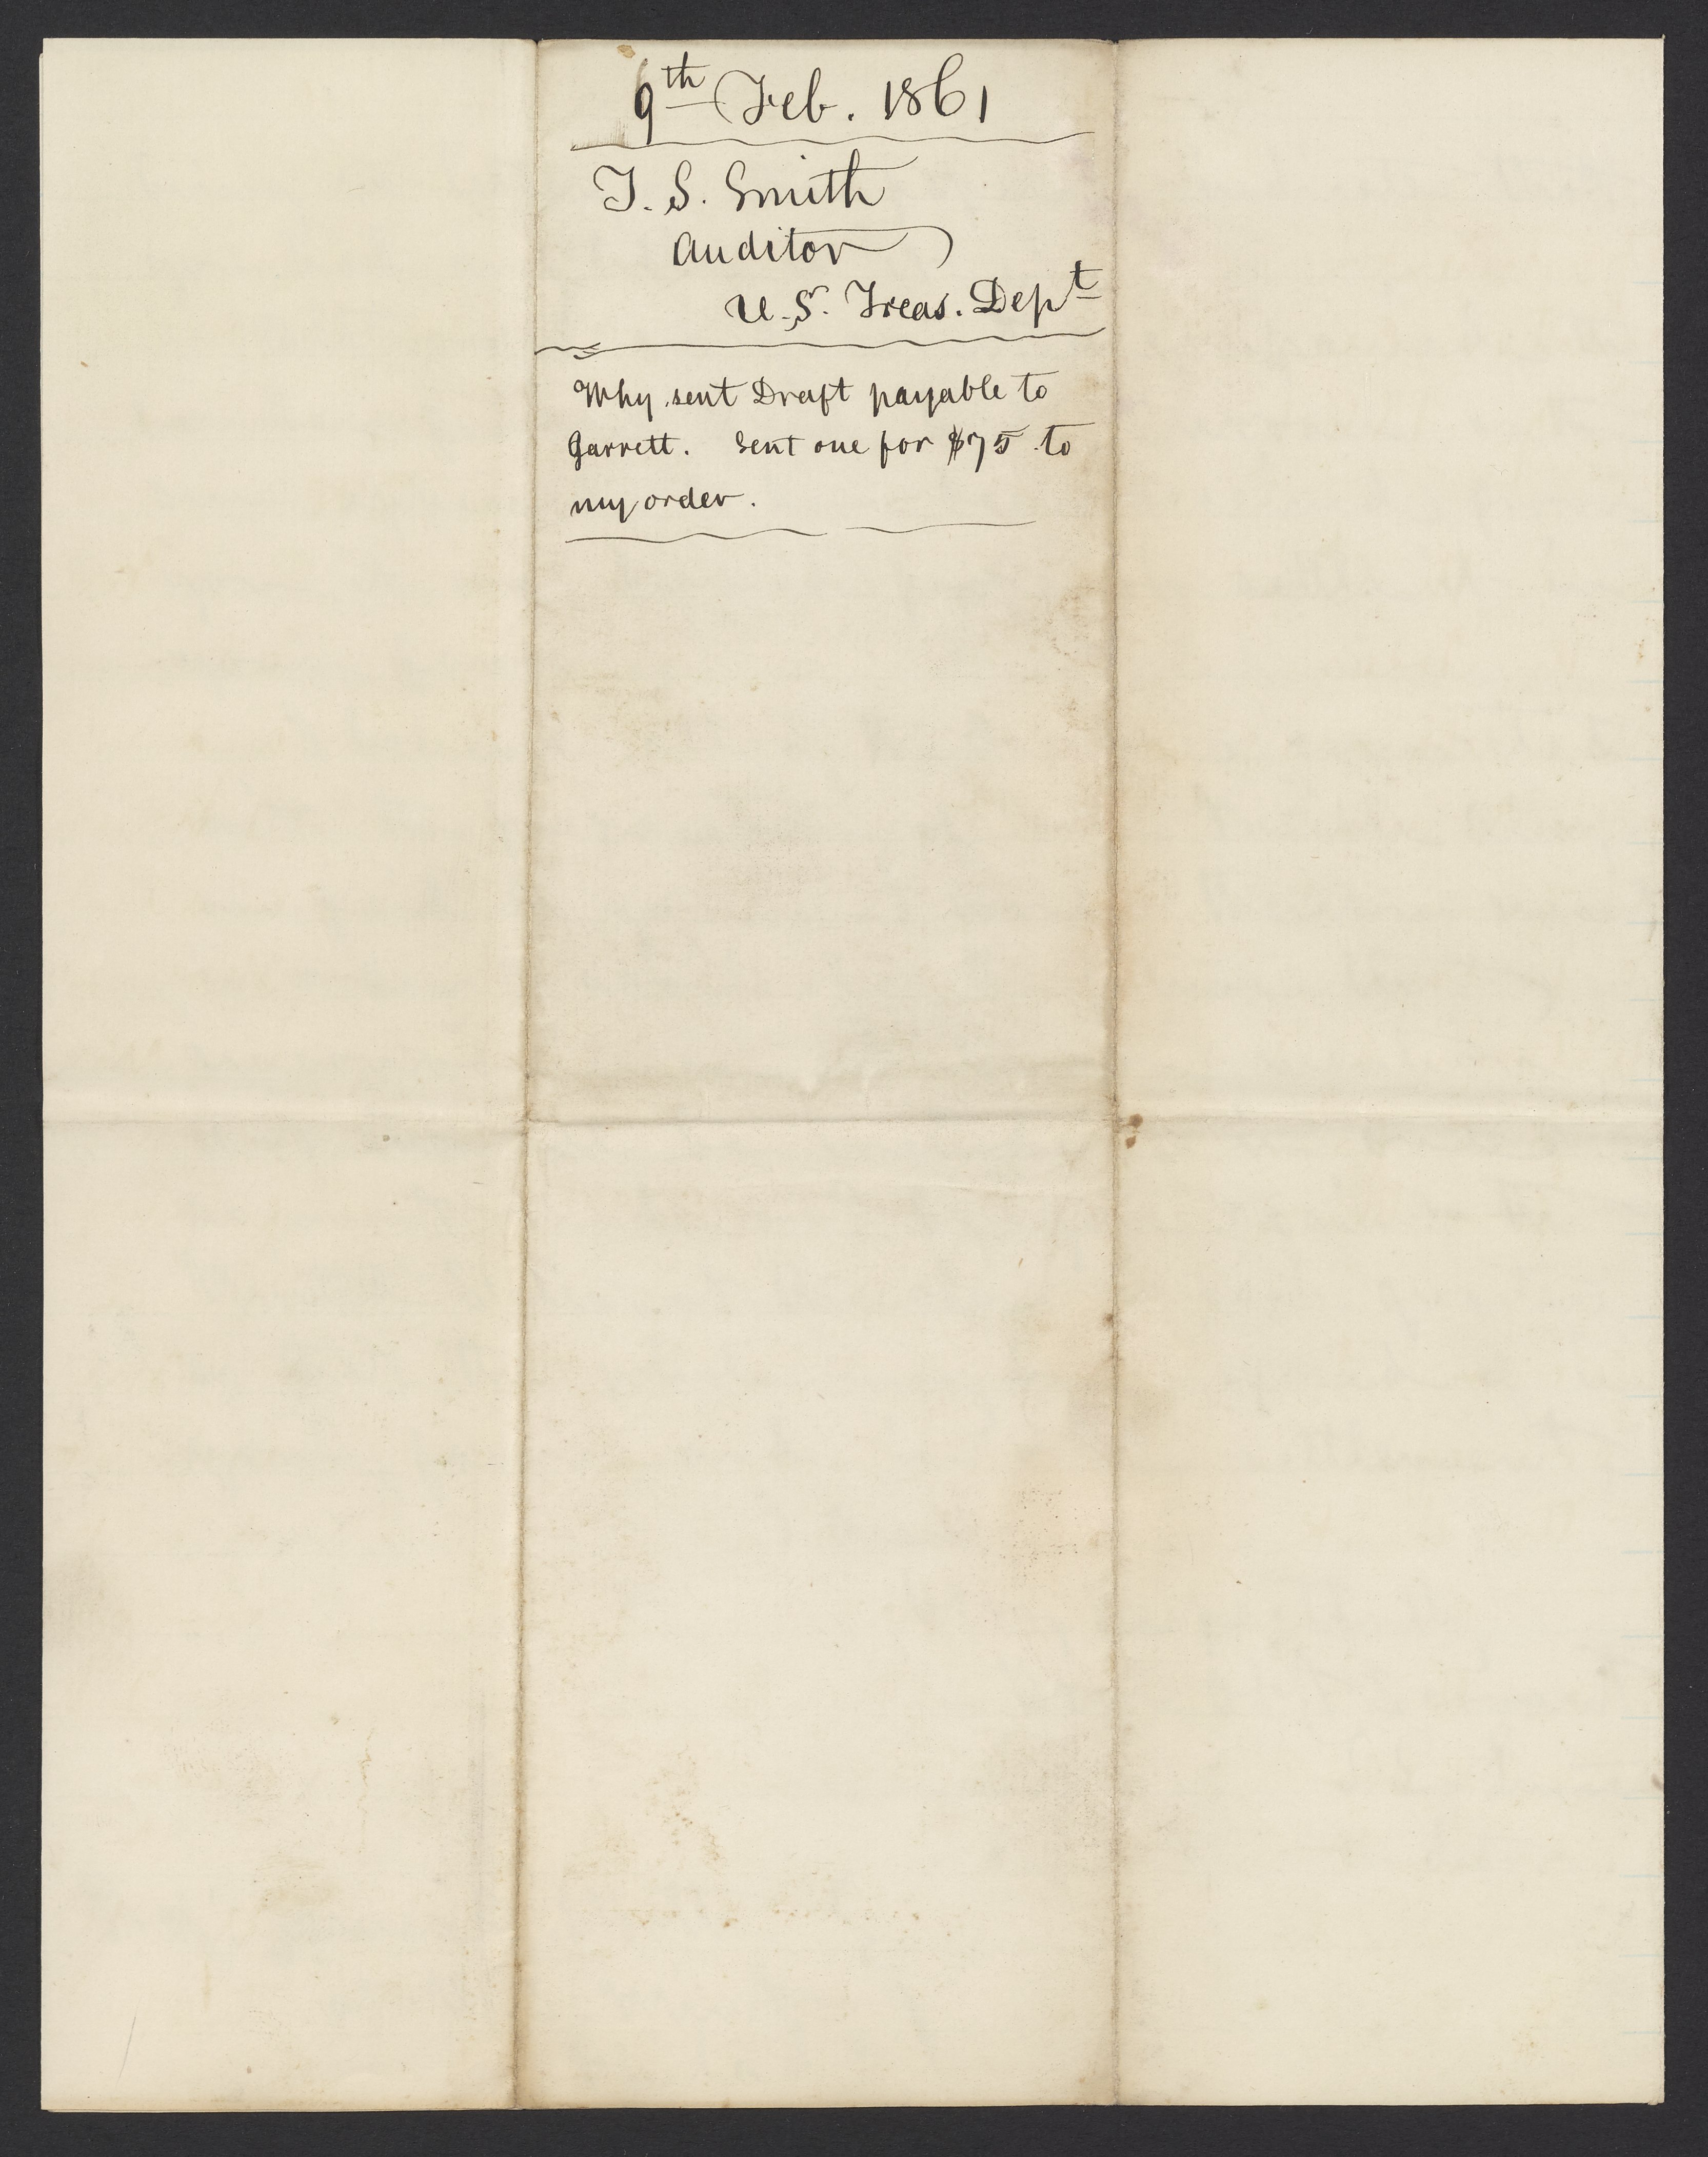 9th Feb. 1861
T. S. Smith
Auditor
U.S. Treas. Dept
Why sent Draft payable to
Garrett. Sent one for $75 to
my order.